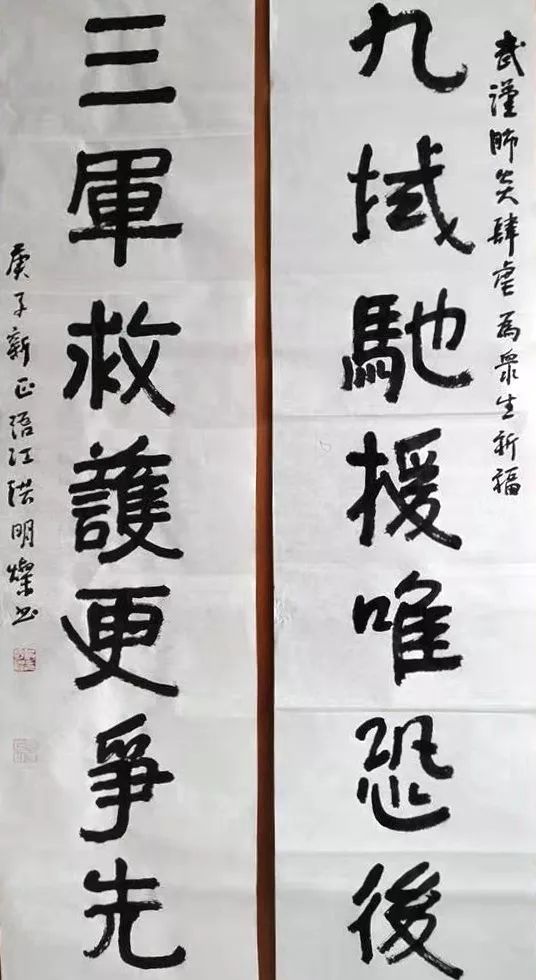 武漢肺炎肆虐為衆生祈福
九域馳援唯恐後
三軍救護更爭先
庚子新正浯江洪明燦书